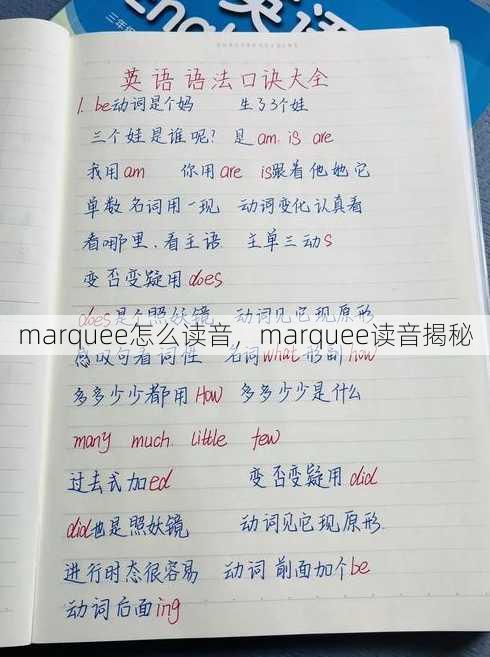 三年
英语
英语语法口诀大全
1. be动词是个妈 生了3个娃
三个娃是谁呢? 是am is are
我用am 你用are is跟着他她它
单数名词用一现 动词变化认真看
看哪里,看主语 主单三动s
变否变疑用does
does是个照妖镜 动词见它现原形
marquee怎么读音,marquee读音揭秘
感叹句看词性 名词what形副how
多多少少都用How 多多少少是什么
many much little few
过去式加ed 变否变疑用did
did也是照妖镜 动词见它现原形
进行时态很容易 动词前面加个be
动词后面ing